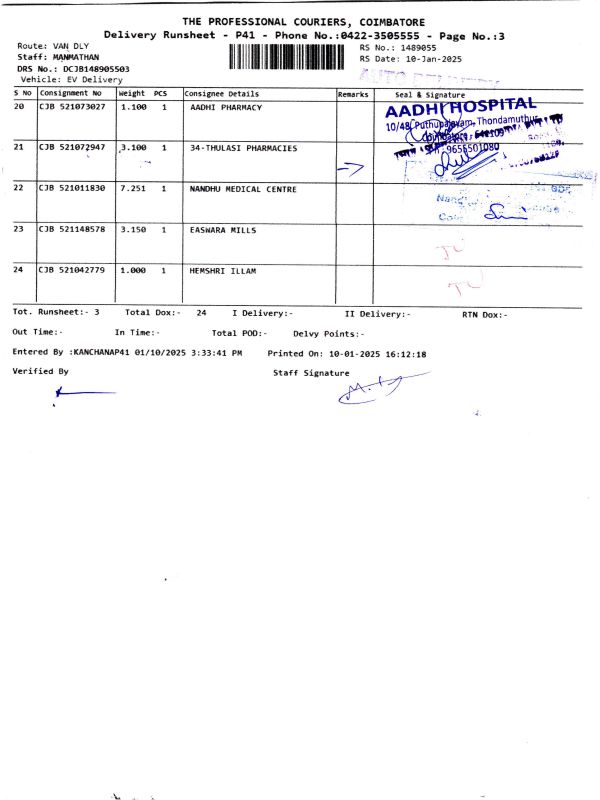 THE PROFESSIONAL COURIERS, COIMBATORE
Delivery Runsheet - P41 - Phone No.:0422-3505555 - Page No.:3
Route: VAN DLY
RS No.: 1489055
Staff: MANMATHAN
RS Date: 10-Jan-2025
DRS No.: DCJB148905503
Vehicle: EV Delivery
S No Consignment No Weight PCS Consignee Details Remarks Seal & Signature
20 CJB 521073027 1.100 1 AADHI PHARMACY
AADHI HOSPITAL
10/48, Puthupalayam, Thondamuthur
9655501080
21 CJB 521072947 3.100 1 34-THULASI PHARMACIES
22 CJB 521011830 7.251 1 NANDHU MEDICAL CENTRE
23 CJB 521148578 3.150 1 EASWARA MILLS
24 CJB 521042779 1.000 1 HEMSHRI ILLAM
Tot. Runsheet:- 3 Total Dox:- 24 I Delivery:- II Delivery:- RTN Dox:-
Out Time:- In Time:- Total POD:- Delvy Points:-
Entered By :KANCHANAP41 01/10/2025 3:33:41 PM Printed On: 10-01-2025 16:12:18
Verified By Staff Signature